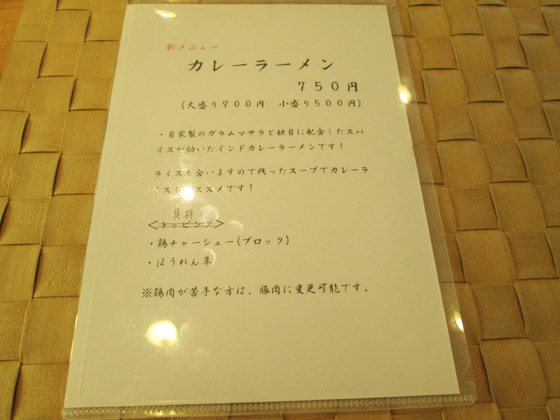 新メニュー
カレーラーメン
７５０円
(大盛り９００円　小盛り５００円)
・自家製のガラムマサラと独自に配合したスパ
イスが効いたインドカレーラーメンです！
ライスも合いますので残ったスープでカレーラ
イスもオススメです！
具材
＜トッピング＞
・鶏チャーシュー(ブロック)
・ほうれん草
※鶏肉が苦手な方は、豚肉に変更可能です。